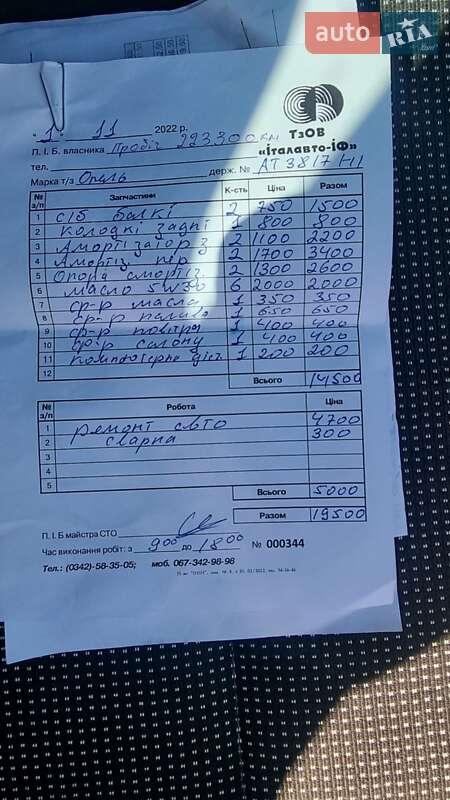 auto RIA .com
ТзОВ
«італавто-ІФ»
1. 11 2022 р.
П. І. Б. власника Пробіг 223300 км
тел. держ. № АТ3817НІ
Марка т/з Опель
№ з/п Запчастини К-сть Ціна Разом
1 с/б балкі 2 750 1500
2 колодкі задні 1 800 800
3 Амортізатор з 2 1100 2200
4 Амортіз. пер 2 1700 3400
5 Опора амортіз. 2 1300 2600
6 масло 5w30 6 2000 2000
7 ф-р масла 1 350 350
8 ф-р палива 1 650 650
9 ф-р повітря 1 400 400
10 ф-р салону 1 400 400
11 1 200 200
12
Всього 14500
№ з/п Робота Ціна
1 ремонт авто 4700
2 сварка 300
3
4
5
Всього 5000
Разом 19500
П. І. Б майстра СТО
Час виконання робіт: з 9 00 до 18 00 № 000344
Тел.: (0342)-58-35-05; моб. 067-342-98-98